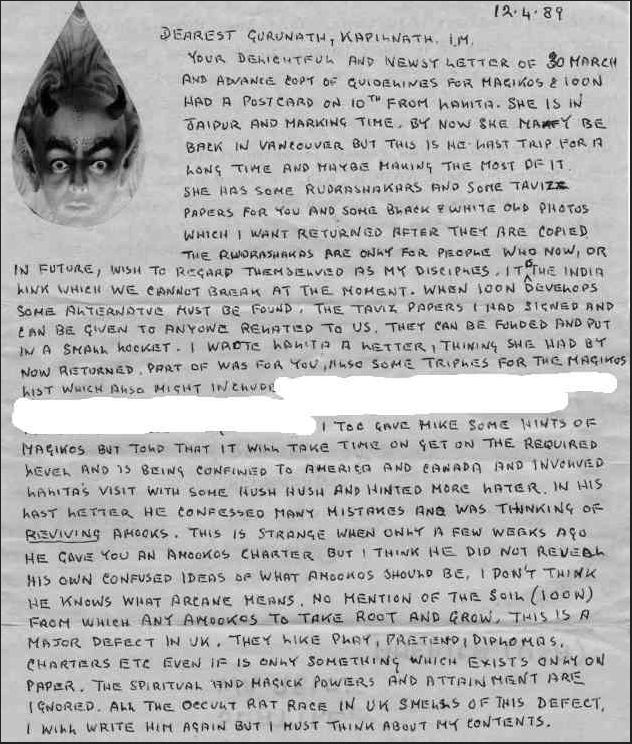 12.4.89
DEAREST GURUNATH, KAPILNATH. I.M.
YOUR DELIGHTFUL AND NEWSY LETTER OF 30 MARCH
AND ADVANCE COPY OF GUIDELINES FOR MAGIKOS & IOON
HAD A POSTCARD ON 10TH FROM LALITA. SHE IS IN
JAIPUR AND MARKING TIME. BY NOW SHE MAY BE
BACK IN VANCOUVER BUT THIS IS HE LAST TRIP FOR A
LONG TIME AND MAYBE MAKING THE MOST OF IT.
SHE HAS SOME RUDRASHAKARS AND SOME TAVIZ
PAPERS FOR YOU AND SOME BLACK & WHITE OLD PHOTOS
WHICH I WANT RETURNED AFTER THEY ARE COPIED
THE RUDRASHAKAS ARE ONLY FOR PEOPLE WHO NOW, OR
IN FUTURE, WISH TO REGARD THEMSELVED AS MY DISCIPLES. IT IS THE INDIA
LINK WHICH WE CANNOT BREAK AT THE MOMENT. WHEN IOON DEVELOPS
SOME ALTERNATVE MUST BE FOUND. THE TAVIZ PAPERS I HAD SIGNED AND
CAN BE GIVEN TO ANYONE RELATED TO US. THEY CAN BE FOLDED AND PUT
IN A SMALL LOCKET. I WROTE LALITA A LETTER, THINING SHE HAD BY
NOW RETURNED. PART OF WAS FOR YOU, ALSO SOME TRIPLES FOR THE MAGIKOS
LIST WHICH ALSO MIGHT INCLUDE
I TOO GAVE MIKE SOME HINTS OF
MAGIKOS BUT TOLD THAT IT WILL TAKE TIME ON GET ON THE REQUIRED
LEVEL AND IS BEING CONFINED TO AMERICA AND CANADA AND INVOLVED
LALITA'S VISIT WITH SOME HUSH HUSH AND HINTED MORE LATER. IN HIS
LAST LETTER HE CONFESSED MANY MISTAKES AND WAS THINKING OF
REVIVING AMOOKS. THIS IS STRANGE WHEN ONLY A FEW WEEKS AGO
HE GAVE YOU AN AMOOKOS CHARTER BUT I THINK HE DID NOT REVEAL
HIS OWN CONFUSED IDEAS OF WHAT AMOOKOS SHOULD BE. I DON'T THINK
HE KNOWS WHAT ARCANE MEANS. NO MENTION OF THE SOIL (IOON)
FROM WHICH ANY AMOOKOS TO TAKE ROOT AND GROW. THIS IS A
MAJOR DEFECT IN UK. THEY LIKE PLAY, PRETEND, DIPLOMAS,
CHARTERS ETC EVEN IF IS ONLY SOMETHING WHICH EXISTS ONLY ON
PAPER. THE SPIRITUAL AND MAGICK POWERS AND ATTAINMENT ARE
IGNORED. ALL THE OCCULT RAT RACE IN UK SMELLS OF THIS DEFECT.
I WILL WRITE HIM AGAIN BUT I MUST THINK ABOUT MY CONTENTS.